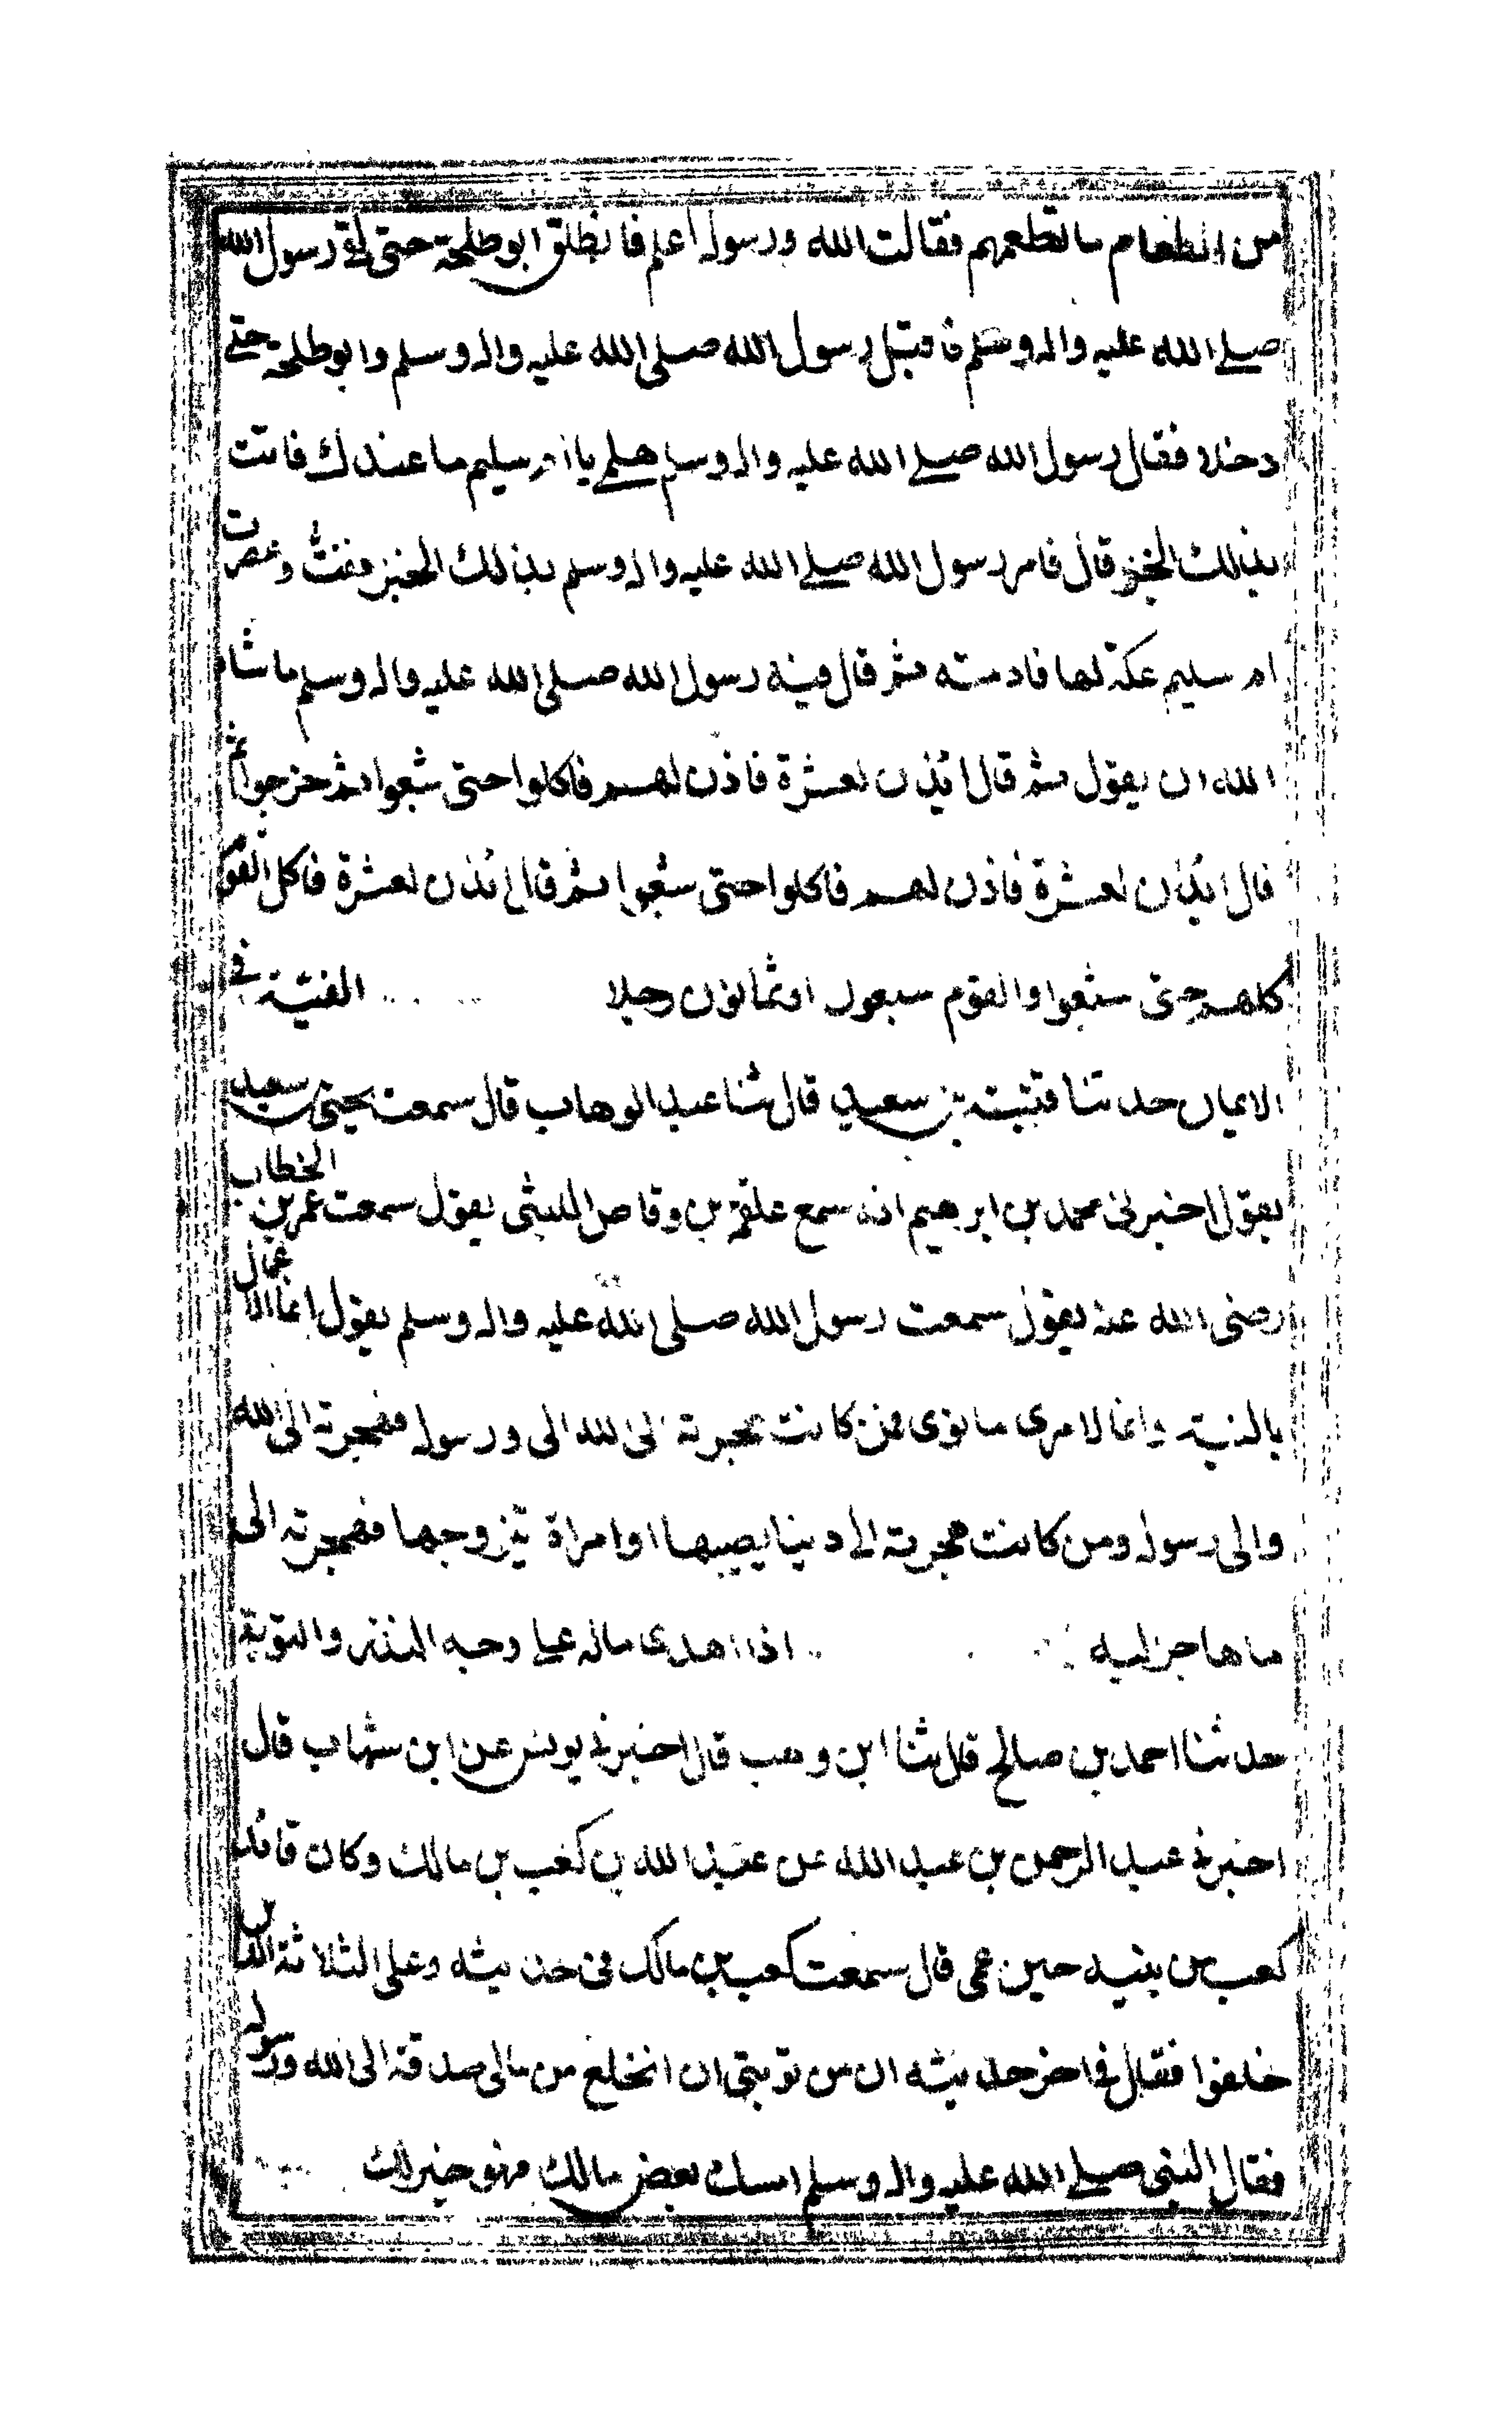 من الطعام ما نطعمهم فقالت الله ورسوله اعلم فانطلق ابو طلحة حتى لقى رسول الله
صلى الله عليه واله وسلم فاقبل رسول الله صلى الله عليه واله وسلم وابو طلحة حتى
دخلا فقال رسول الله صلى الله عليه واله وسلم هلمى يا ام سليم ما عندك فاتت
بذلك الخبز قال فامر رسول الله صلى الله عليه واله وسلم بذلك الخبز ففت وعصرت
ام سليم عكة لها فادمته ثم قال فيه رسول الله صلى الله عليه واله وسلم ماشاء
الله ان يقول ثم قال ائذن لعشرة فاذن لهم فاكلوا حتى شبعوا ثم خرجوا ثم
قال ائذن لعشرة فاذن لهم فاكلوا حتى شبعوا ثم قال ائذن لعشرة فاكل القوم
كلهم حتى شبعوا والقوم سبعون او ثمانون رجلا النية في
الايمان حدثنا قتيبة بن سعيد قال ثنا عبد الوهاب قال سمعت يحيى بن سعيد
يقول اخبرنى محمد بن ابرهيم انه سمع علقمة بن وقاص الليثى يقول سمعت عمر بن الخطاب
رضى الله عنه يقول سمعت رسول الله صلى الله عليه واله وسلم يقول انما الاعمال
بالنية وانما لامرى ما نوى فمن كانت هجرته الى الله الى ورسوله فهجرته الى الله
والى رسوله ومن كانت هجرته الى دنيا يصيبها او امراة يتزوجها فهجرته الى
ما هاجر اليه اذا اهدى ماله على وجه النذر والتوبة
حدثنا احمد بن صالح قال ثنا ابن وهب قال اخبرنى يونس عن ابن شهاب قال
اخبرنى عبد الرحمن بن عبد الله عن عبد الله بن كعب بن مالك وكان قائد
كعب من بنيه حين عمى قال سمعت كعب بن مالك فى حديثه وعلى الثلاثة الذين
خلفوا فقال فى اخر حديثه ان من توبتى ان انخلع من مالى صدقة الى الله ورسوله
فقال النبى صلى الله عليه واله وسلم امسك بعض مالك فهو خير لك